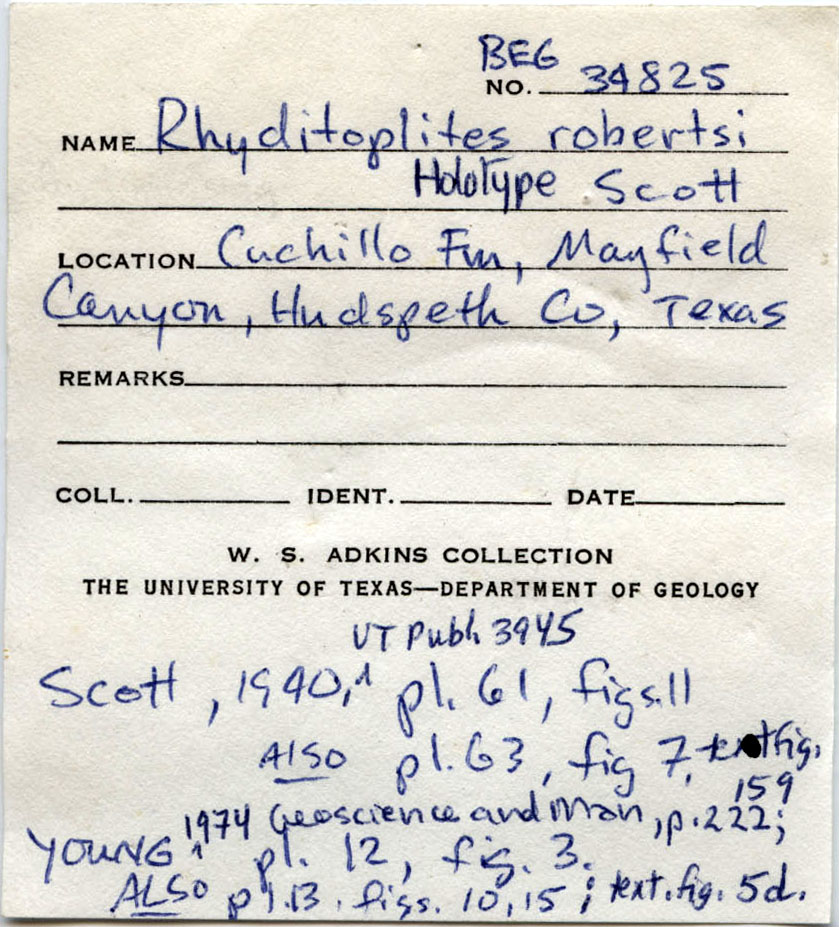 BEG
NO. 34825
NAME Rhyditoplites robertsi
Holotype Scott
LOCATION Cuchillo Fm, Mayfield
Canyon, Hudspeth Co, Texas
REMARKS
COLL. IDENT. DATE
W. S. ADKINS COLLECTION
THE UNIVERSITY OF TEXAS—DEPARTMENT OF GEOLOGY
UT Publ. 3945
Scott, 1940,^ pl. 61, figs. 11
ALSO pl. 63, fig 7, text fig.
159
1974 Geoscience and Man, p. 222;
YOUNG ^ pl. 12, fig. 3.
ALSO pl. 13. figs. 10, 15; text. fig. 5d.